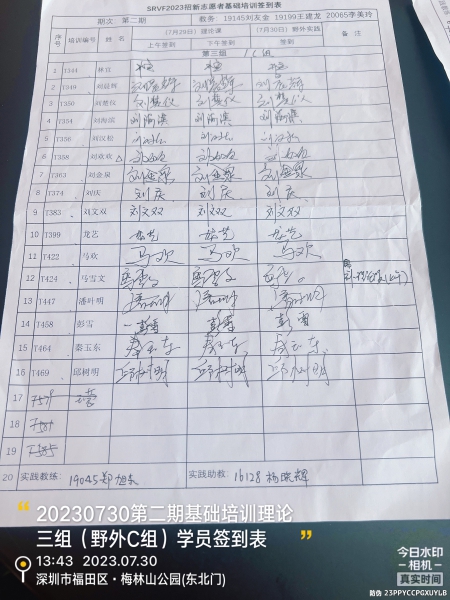 SRVF2023招新志愿者基础培训签到表
期次 第二期 教务:19145刘友金 19199王建龙 20065李美玲
序号 培训编号 姓名 (7月29日)理论课 (7月30日)野外实践 备注
上午签到 下午签到 签到
第三组
1 T344
2 T349 刘晨辉
3 T350 刘楚仪 刘楚仪 刘楚仪 刘楚仪
4 T354 刘海滨 刘海滨 刘海滨 刘海滨
5 T356 刘汉松
6 T358 刘欢欢
7 T363 刘金泉 刘金泉 刘金泉 刘金泉
8 T374 刘庆 刘庆 刘庆 刘庆
9 T383 刘文双 刘文双 刘文双 刘文双
10 T399 龙艺 龙艺 龙艺 龙艺
11 T422 马欢 马欢 马欢 马欢
12 T424 马雪文
13 T447 潘叶明
14 T458 彭雪 彭雪 彭雪 彭雪
15 T464 秦玉东 秦玉东 秦玉东 秦玉东
16 T469 邱树明 邱树明 邱树明 邱树明
17
18
19
20 实践教练: 19045 实践助教: 16128 杨晓辉
20230730第二期基础培训理论
三组(野外C组)学员签到表
13:43 2023.07.30
深圳市福田区·梅林山公园(东北门)
今日水印
相机
真实时间
防伪 23PPYCCPGXUYLB